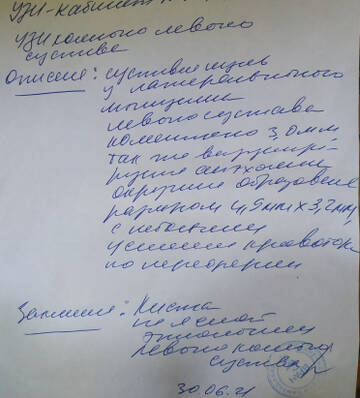 УЗИ-кабинет
УЗИ коленого левого
сустава
Описание: суставная щель
у латерального
мыщелка
левого сустава
3,0мм
так же
образование
размером 4,9мм х 3,2мм,
с небольшим
усилением кровотока
по периферии
Заключение: Киста
не ясной
этиологии
левого коленного
сустава
30.06.21